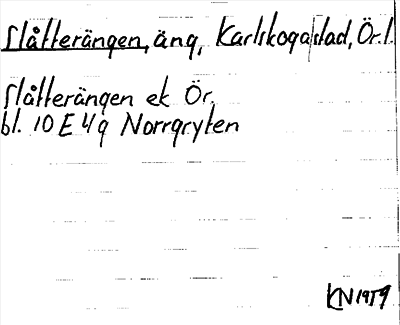 Slåtterängen, äng, Karlskoga stad, Ör. l.
Slåtterängen ek Ör.
bl. 10 E 4g Norrgryten
KN 1959